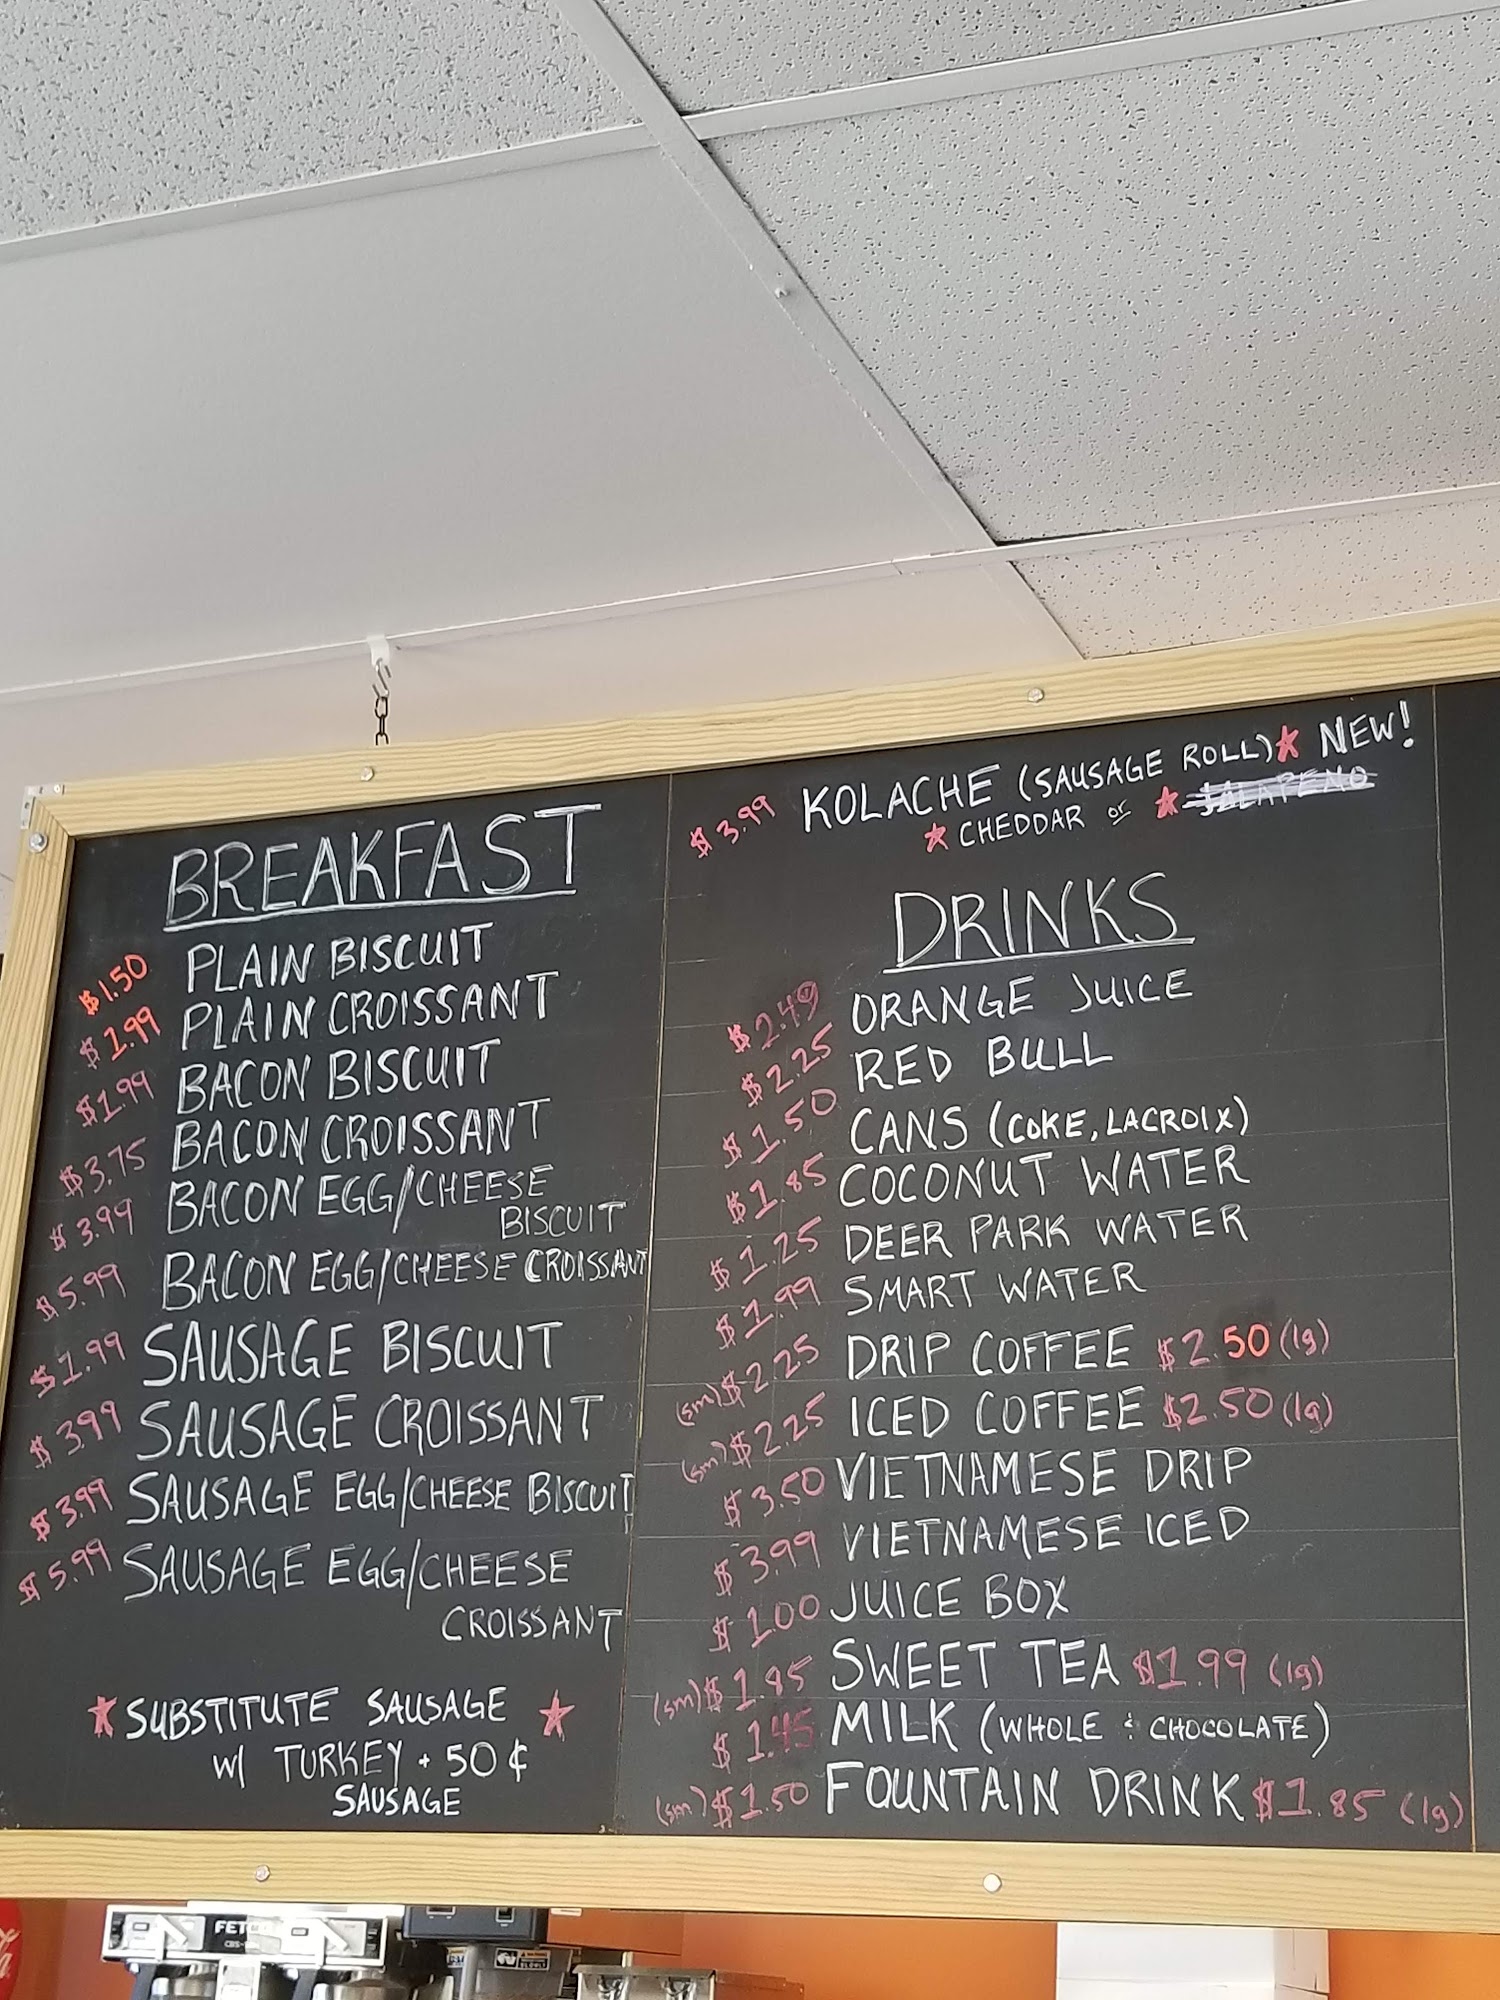 BREAKFAST
$1.50 PLAIN BISCUIT
$1.99 PLAIN CROISSANT
$1.99 BACON BISCUIT
$3.75 BACON CROISSANT
$3.99 BACON EGG/CHEESE
BISCUIT
$5.99 BACON EGG/CHEESE CROISSANT
$1.99 SAUSAGE BISCUIT
$3.99 SAUSAGE CROISSANT
$3.99 SAUSAGE EGG/CHEESE BISCUIT
$5.99 SAUSAGE EGG/CHEESE
CROISSANT
★ SUBSTITUTE SAUSAGE ★
W/ TURKEY + 50¢
SAUSAGE
$3.99 KOLACHE (SAUSAGE ROLL) ★ NEW!
★ CHEDDAR or ★ JALAPENO
DRINKS
$2.49 ORANGE JUICE
$2.25 RED BULL
$1.50 CANS (COKE, LACROIX)
$1.85 COCONUT WATER
$1.25 DEER PARK WATER
$1.99 SMART WATER
(sm) $2.25 DRIP COFFEE $2.50 (lg)
(sm) $2.25 ICED COFFEE $2.50 (lg)
$3.50 VIETNAMESE DRIP
$3.99 VIETNAMESE ICED
$1.00 JUICE BOX
(sm) $1.85 SWEET TEA $1.99 (lg)
$1.45 MILK (WHOLE & CHOCOLATE)
(sm) $1.50 FOUNTAIN DRINK $1.85 (lg)